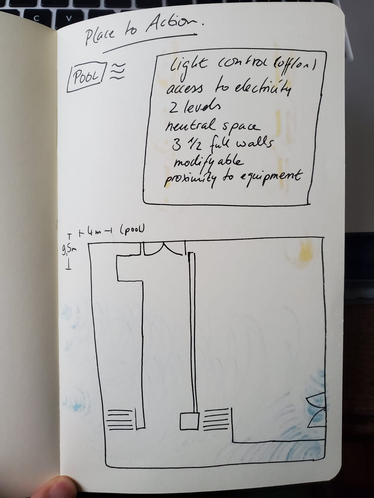 Place to Action.
POOL
light control (off/on)
access to electricity
2 levels
neutral space
3 1/2 full walls
modifyable
proximity to equipment
4m (pool)
9,5m